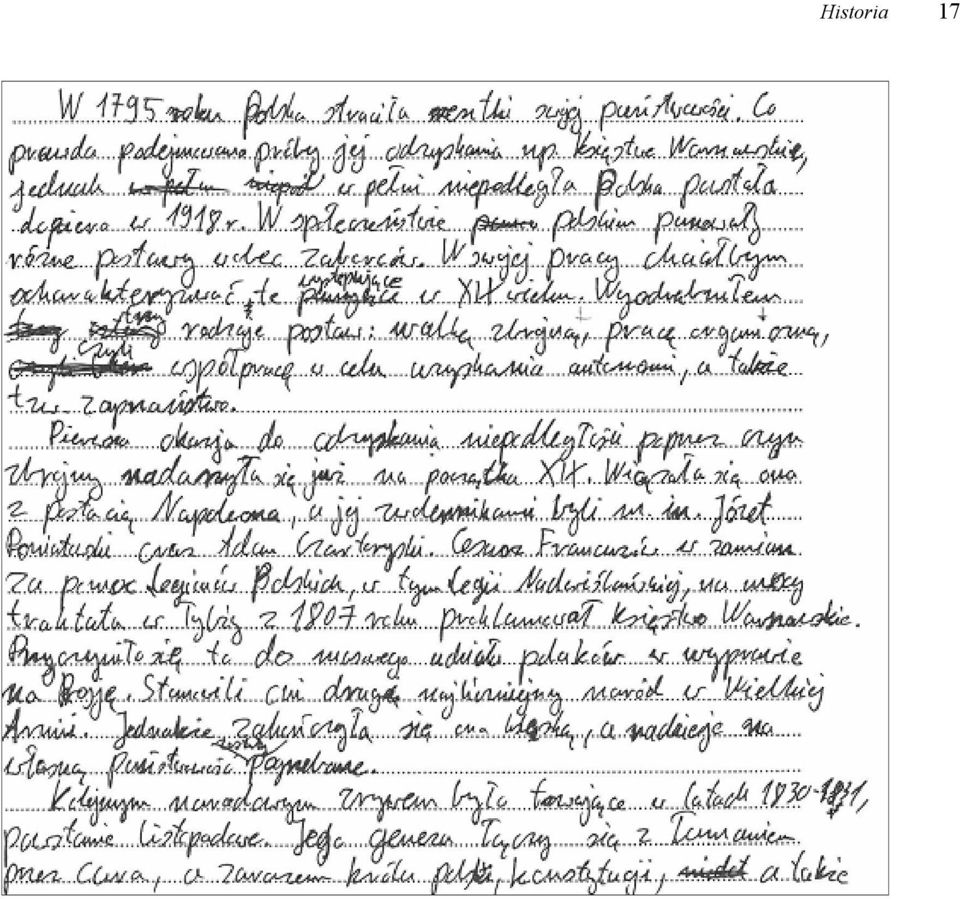 Historia 17
W 1795 roku Polska straciła resztki swojej państwowości. Co
prawda podejmowano próby jej odzyskania np. Księstwo Warszawskie,
jednak w pełni niepodległa Polska powstała
dopiero w 1918 r. W społeczeństwie polskim panowały
różne postawy wobec zaborców. W swojej pracy chciałbym
scharakteryzować te występujące w XIX wieku. Wyodrębniłem
trzy rodzaje postaw: walkę zbrojną, pracę organiczną,
czyli współpracę w celu uzyskania autonomii, a także
tzw. zaprzaństwo.
Pierwsza okazja do odzyskania niepodległości poprzez czyn
zbrojny nadarzyła się już na początku XIX. Wiązała się ona
z postacią Napoleona, a jej zwolennikami byli m. in. Józef
Poniatowski oraz Adam Czartoryski. Cesarz Francuzów w zamian
za pomoc Legionów Polskich, w tym Legii Nadwiślańskiej, na mocy
traktatu w Tylży z 1807 roku proklamował Księstwo Warszawskie.
Przyczyniło się to do masowego udziału polaków w wyprawie
na Rosję. Stanowili oni drugą najliczniejszy naród w Wielkiej
Armii. Jednakże zakończyła się ona klęską, a nadzieje na
własną państwowość zostały pogrzebane.
Kolejnym narodowym zrywem było trwające w latach 1830-1831,
powstanie listopadowe. Jego geneza łączy się z łamaniem
przez cara, a zarazem króla polski, konstytucji, a także